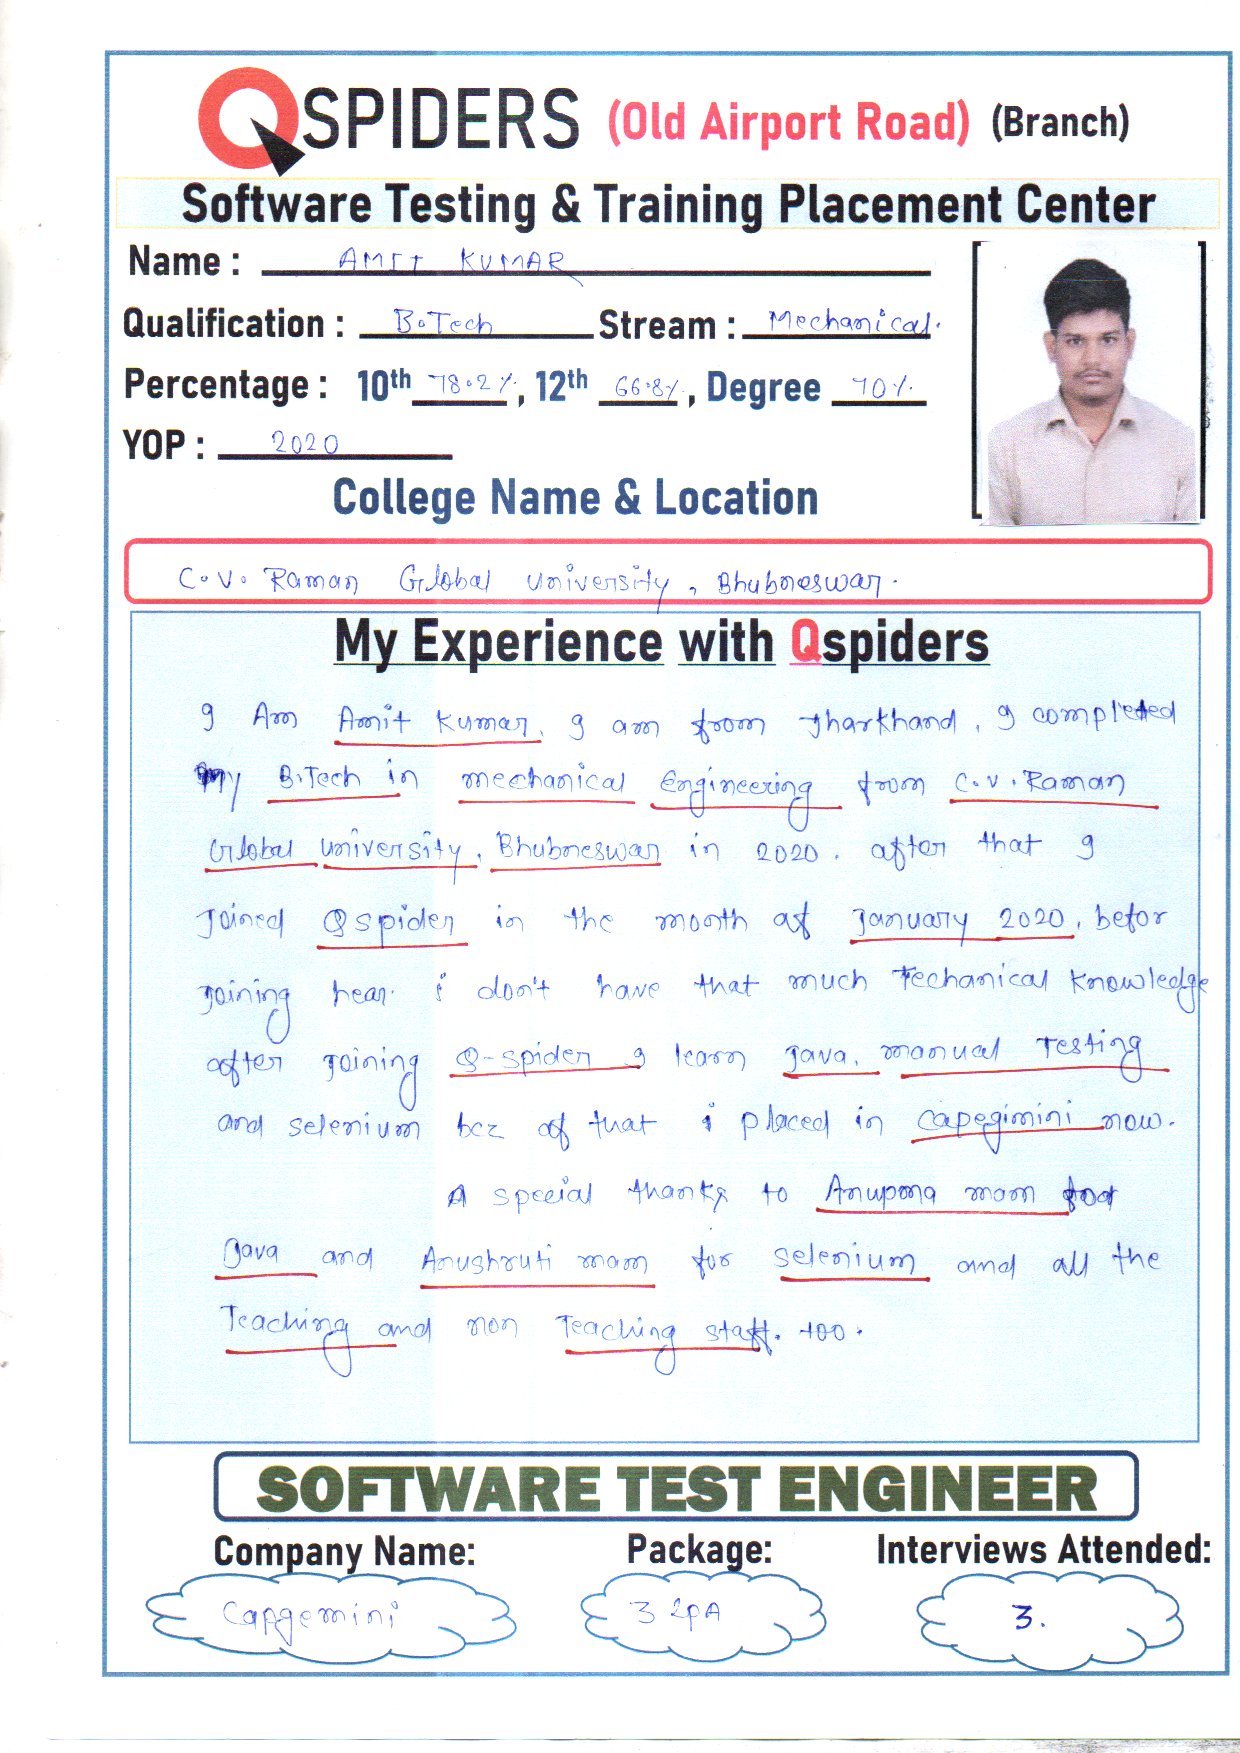 QSPIDERS (Old Airport Road) (Branch)
Software Testing & Training Placement Center
Name : AMIT KUMAR
Qualification : B.Tech Stream : Mechanical.
Percentage : 10th 78.2%, 12th 66.8%, Degree 70%
YOP : 2020
College Name & Location
C.V. Raman Global University, Bhubneswar.
My Experience with Qspiders
I Am Amit Kumar, I am from Jharkhand, I completed
My B.Tech in mechanical Engineering from C.V. Raman
Global University, Bhubneswar in 2020. after that I
Joined Qspider in the month of January 2020, befor
Joining hear. i don't have that much Techanical Knowledge
after Joining Q-spider I learn Java, manual Testing
and selenium bcz of that i placed in capegimini now.
A special thanks to Anupma mam for
Java and Anushruti mam for selenium and all the
Teaching and non Teaching staff. too.
SOFTWARE TEST ENGINEER
Company Name: Package: Interviews Attended:
Capgemini 3 LPA 3.